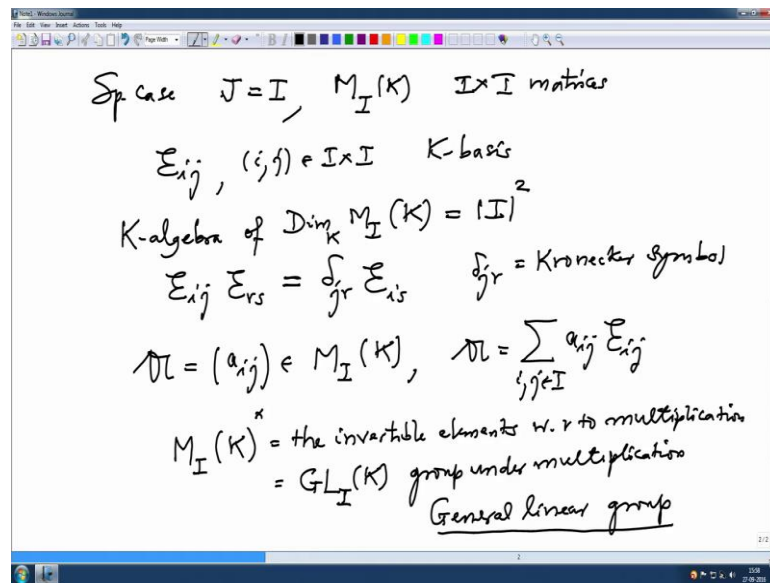 Note1 - Windows Journal
File Edit View Insert Actions Tools Help
Page Width
Sp case J = I, M_I(K) I×I matrices
ℰ_ij, (i,j) ∈ I×I K-basis
K-algebra of Dim_K M_I(K) = |I|^2
ℰ_ij ℰ_rs = δ_jr ℰ_is δ_jr = Kronecker symbol
𝔄 = (a_ij) ∈ M_I(K), 𝔄 = ∑_{i,j∈I} a_ij ℰ_ij
M_I(K)^× = the invertible elements w.r to multiplication
= GL_I(K) group under multiplication
General linear group
2/2
2
15:58
27-09-2018